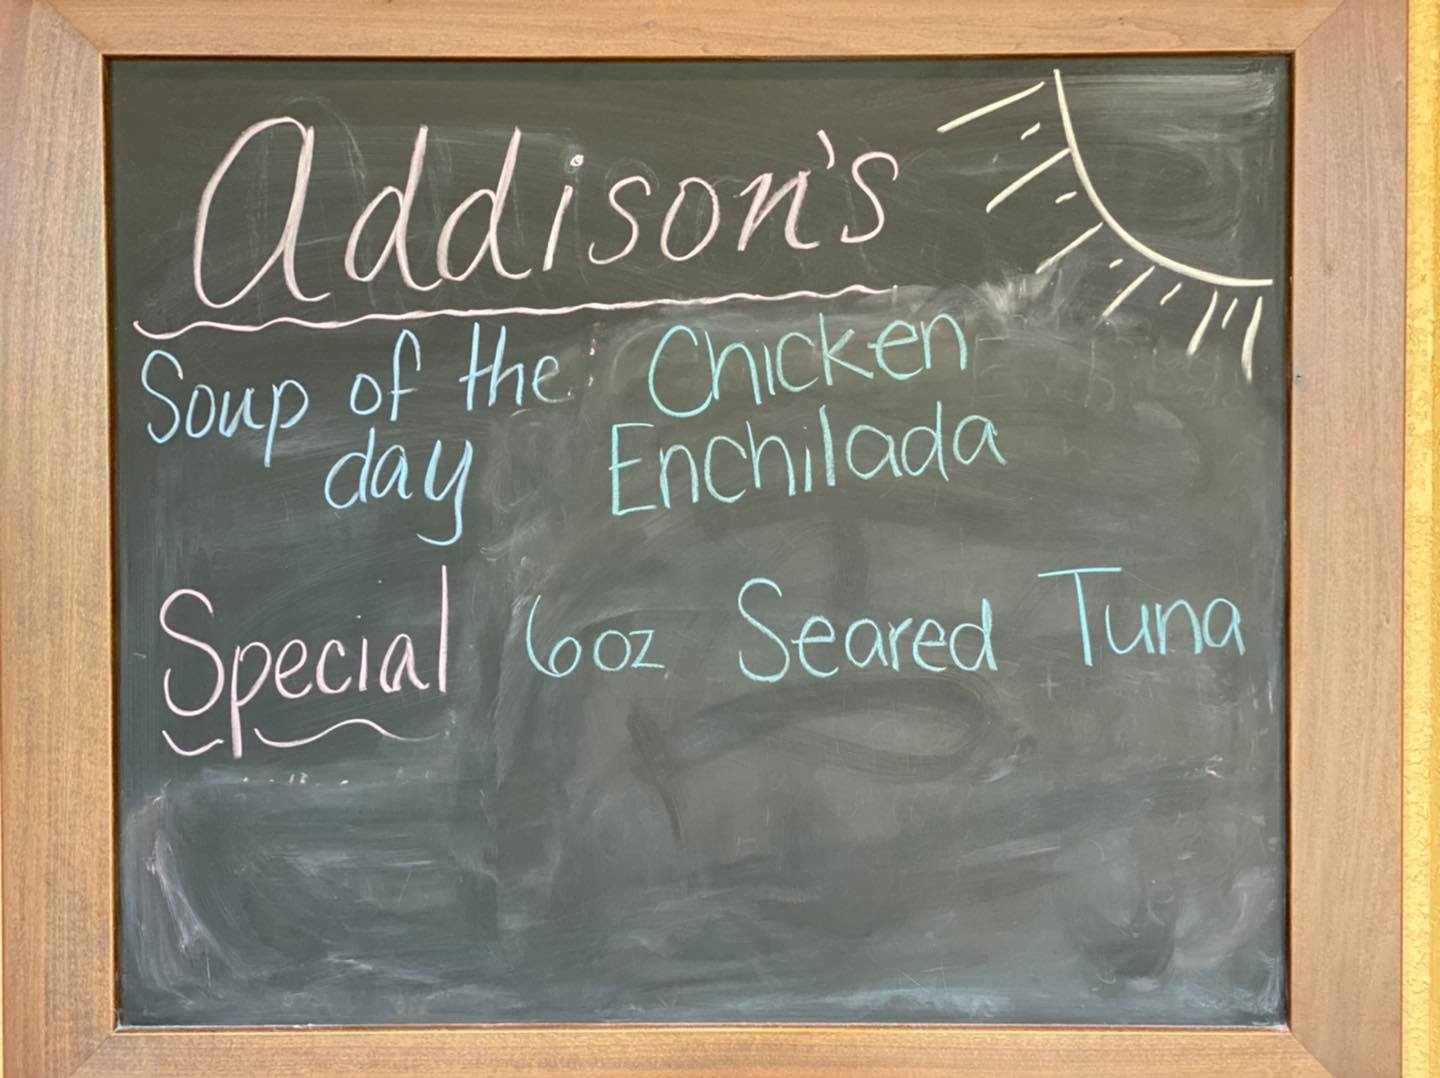 Addison's
Soup of the Chicken
day Enchilada
Special 6oz Seared Tuna